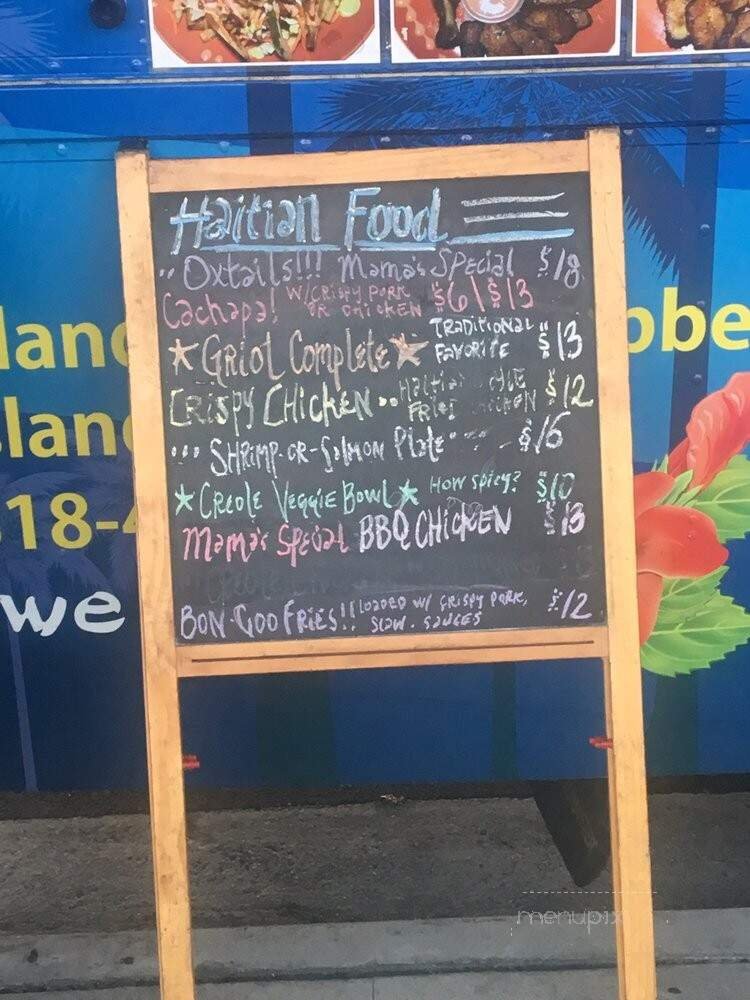 Haitian Food
Oxtails!!! Mama's Special $18
Cachapa! W/CRISPY PORK OR CHICKEN $6 | $13
GRIOT COMPLETE TRADITIONAL FAVORITE $13
CRISPY CHICKEN FRIED CHICKEN $12
SHRIMP-OR-SALMON Plate $16
CREOLE VEGGIE BOWL HOW SPICY? $10
Mama's Special BBQ CHICKEN $13
BON-GOO FRIES!! LOADED W/ CRISPY PORK, $12
SLAW. SAUCES
land
bbe
slan
818-4
we
menupix